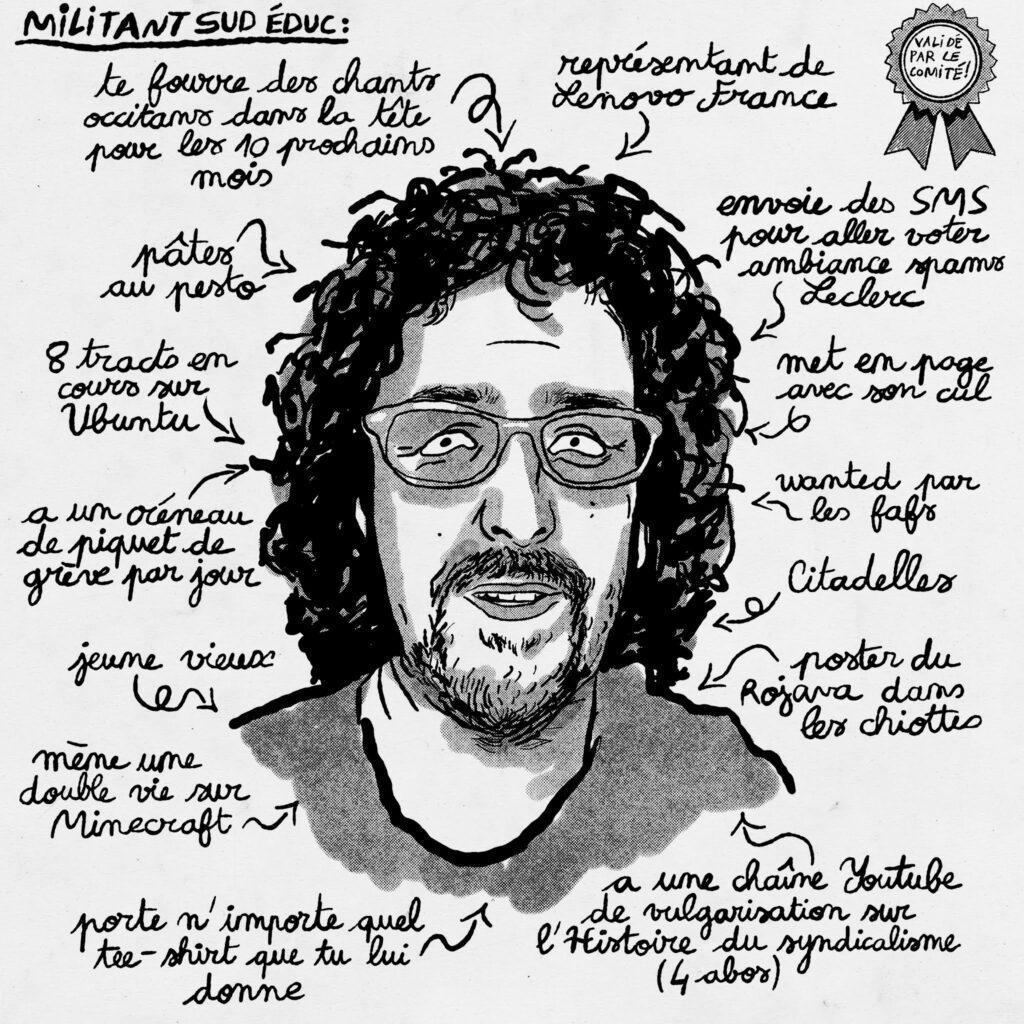 MILITANT SUD ÉDUC :
VALIDÉ
PAR LE
COMITÉ !
te fourre des chants
occitans dans la tête
pour les 10 prochains
mois
représentant de
Lenovo France
pâtes
au pesto
envoie des SMS
pour aller voter
ambiance spams
Leclerc
8 tracts en
cours sur
Ubuntu
met en page
avec son cul
a un créneau
de piquet de
grève par jour
wanted par
les fafs
Citadelles
jeune vieux
poster du
Rojava dans
les chiottes
mène une
double vie sur
Minecraft
a une chaîne Youtube
de vulgarisation sur
l'Histoire du syndicalisme
(4 abos)
porte n'importe quel
tee-shirt que tu lui
donne